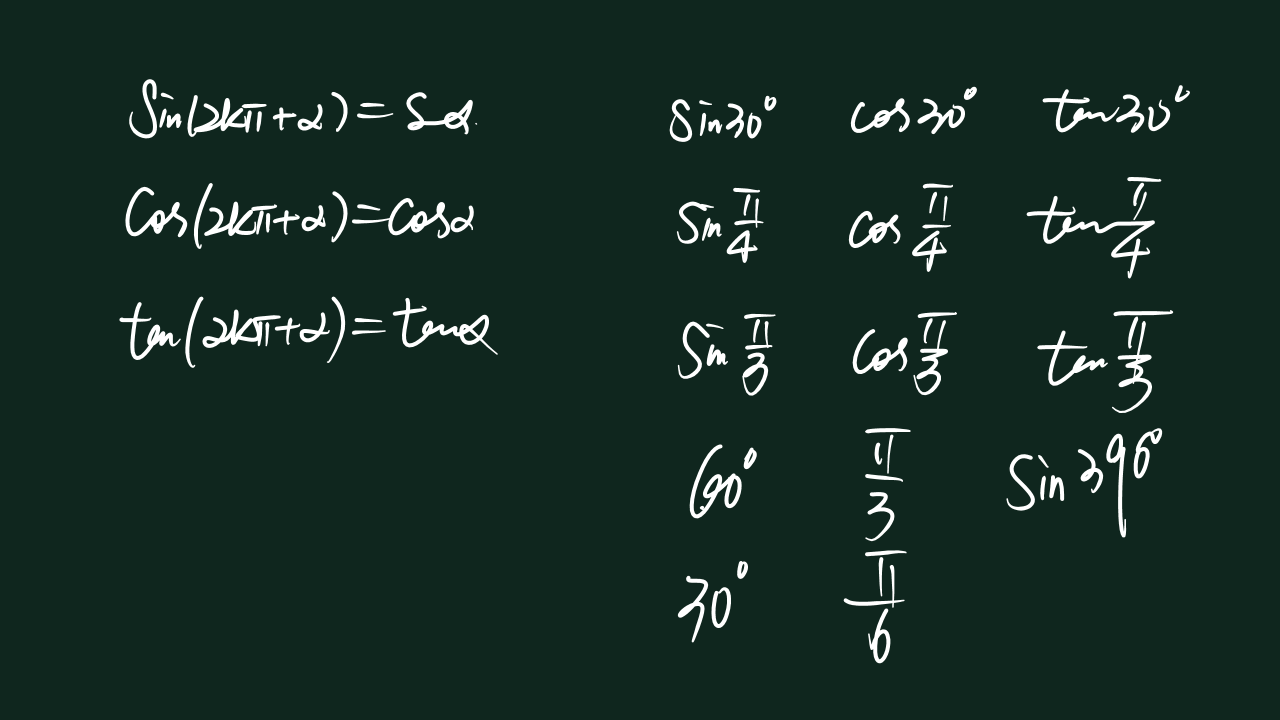 Sin(2kπ+α)=Sα
Cos(2kπ+α)=Cosα
tan(2kπ+α)=tanα
Sin30° cos30° tan30°
Sin π/4 cos π/4 tan π/4
Sin π/3 cos π/3 tan π/3
60° π/3 Sin390°
30° π/6